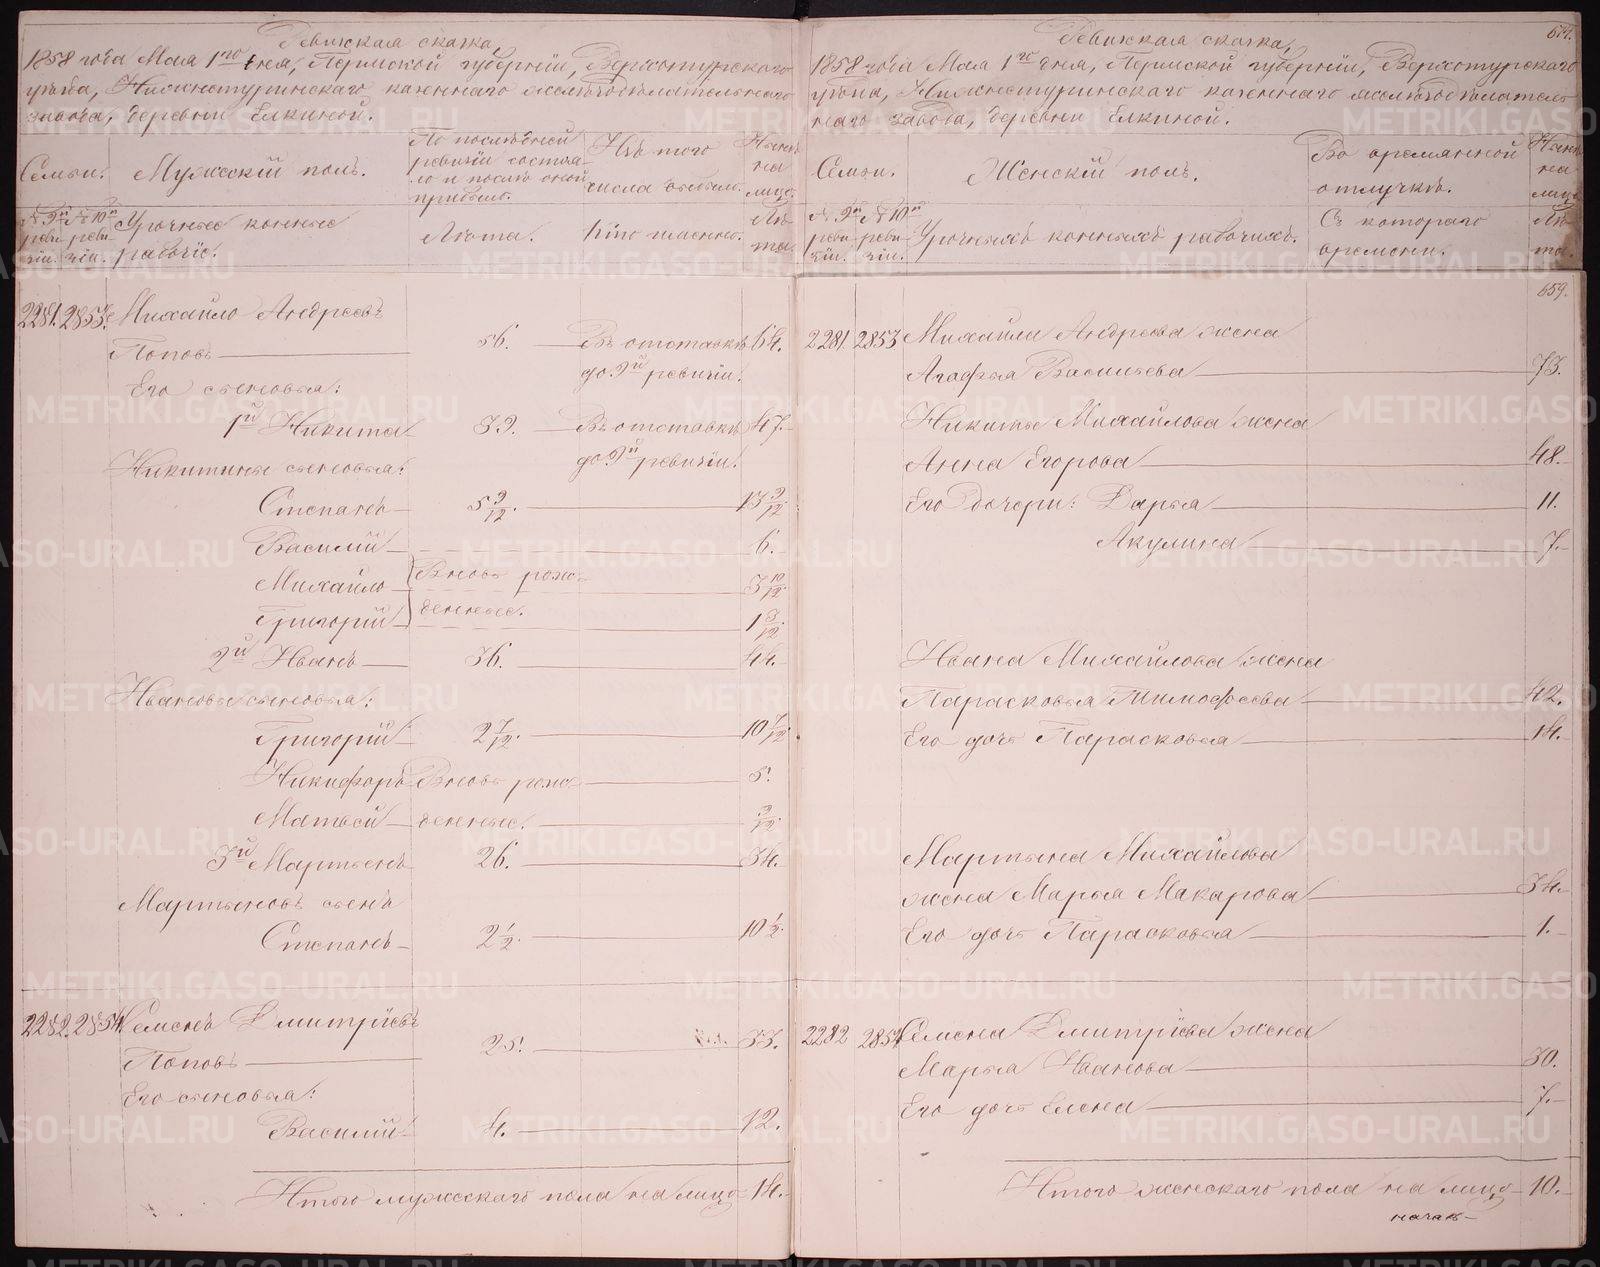 Ревижская сказка,
1858 года Мая 1го дня, Пермской губернiи, Верхотурскаго
уѣзда, Нижнетуринскаго казеннаго желѣзодѣлательнаго
завода, деревни Елкиной.
Семьи.
Мужескiй полъ.
По послѣдней
ревизiи состоя-
ло и послѣ оной
прибыло.
Изъ того
числа выбыло.
Нынѣ
на
лицо.
№ 9й
реви-
зiи.
№ 10й
реви-
зiи.
Урочные конные
рабочiе.
Лѣта.
Кто именно.
Лѣ-
та.
2281. 2853. Михайло Андреевъ
Поповъ 56. Въ отставкѣ 64.
до 9й ревизiи.
Его сыновья:
1й Никита 39. Въ отставкѣ 47.
до 9й ревизiи.
Никитины сыновья:
Степанъ 5 9/12. 13 9/12.
Василiй 6.
Михайло Вновь рож- 3 10/12.
Григорiй денные. 1 3/12.
2й Иванъ 36. 44.
Ивановы сыновья:
Григорiй 2 7/12. 10 7/12.
Никифоръ Вновь рож- 5.
Матвей денные. 9/12.
3й Мартынъ 26. 34.
Мартыновъ сынъ
Степанъ 2 1/2. 10 1/2.
2282. 2854. Семенъ Дмитрiевъ
Поповъ 25. 33.
Его сыновья:
Василiй 4. 12.
Итого мужескаго пола на лицо 14.
674.
Ревижская сказка,
1858 года Мая 1го дня, Пермской губернiи, Верхотурскаго
уѣзда, Нижнетуринскаго казеннаго желѣзодѣлатель-
наго завода, деревни Елкиной.
Семьи.
Женскiй полъ.
Во временной
отлучкѣ.
Нынѣ
на
лицо.
№ 9й
реви-
зiи.
№ 10й
реви-
зiи.
Урочныхъ конныхъ рабочихъ.
Съ котораго
времени.
Лѣ-
та.
659.
2281 2853 Михайла Андреева жена
Агафья Васильева 73.
Никиты Михайлова жена
Анна Егорова 48.
Его дочери: Дарья 11.
Акулина 7.
Ивана Михайлова жена
Парасковья Тимофеева 42.
Его дочь Парасковья 14.
Мартына Михайлова
жена Марья Макарова 34.
Его дочь Парасковья 1.
2282 2854 Семена Дмитрiева жена
Марья Иванова 30.
Его дочь Елена 7.
Итого женскаго пола на лицо 10.
METRIKI.GASO-URAL.RU